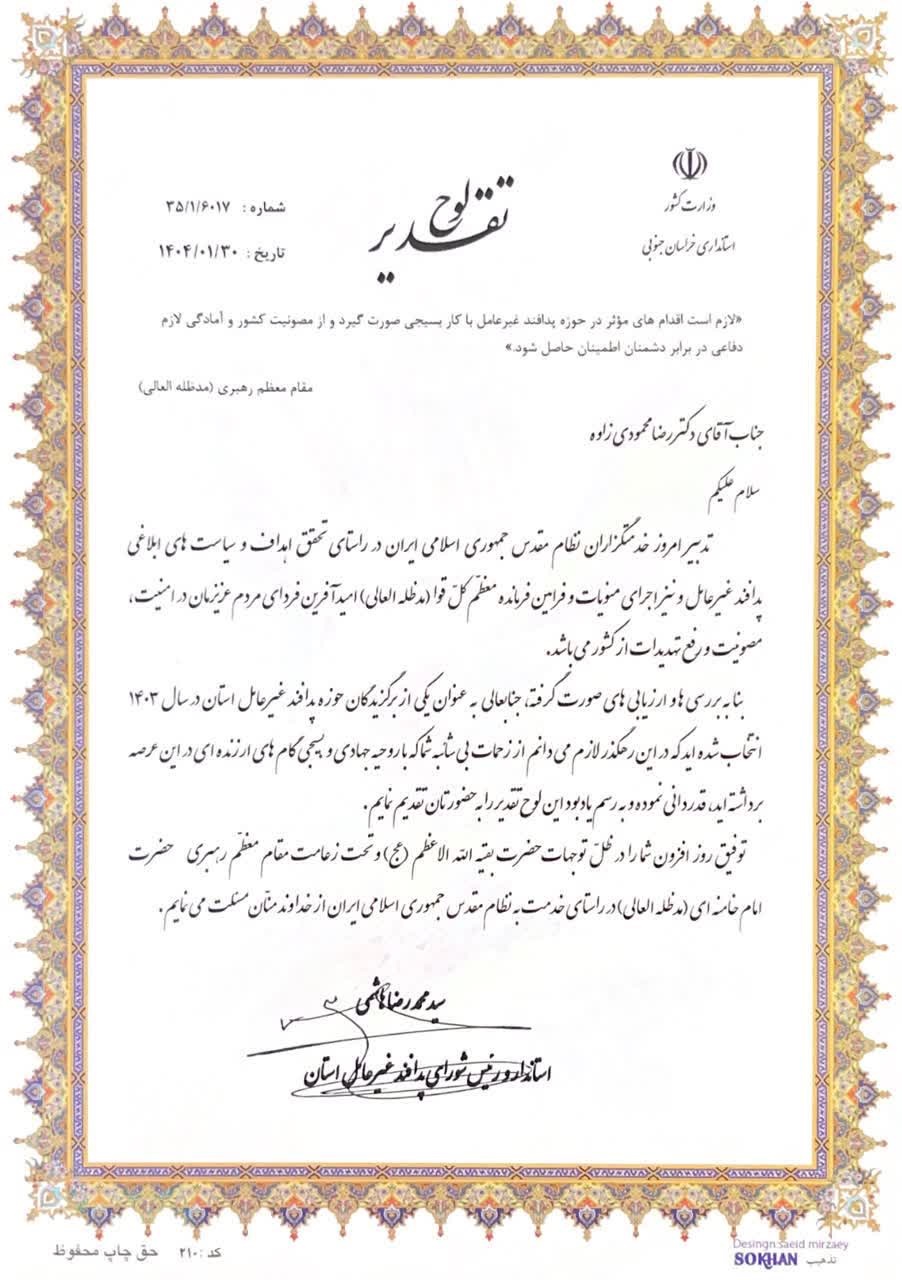 وزارت کشور
استانداری خراسان جنوبی
لوح تقدیر
شماره : ۳۵/۱/۶۰۱۷
تاریخ : ۱۴۰۴/۰۱/۳۰
«لازم است اقدام های مؤثر در حوزه پدافند غیرعامل با کار بسیجی صورت گیرد و از مصونیت کشور و آمادگی لازم
دفاعی در برابر دشمنان اطمینان حاصل شود.»
مقام معظم رهبری (مدظله العالی)
جناب آقای دکتر رضا محمودی زاوه
سلام علیکم
تدبیر امروز خدمتگزاران نظام مقدس جمهوری اسلامی ایران در راستای تحقق اهداف و سیاست های ابلاغی
پدافند غیرعامل و نیز اجرای منویات و فرامین فرمانده معظّم کلّ قوا (مدظله العالی) امیدآفرین فردای مردم عزیزمان در امنیت،
مصونیت و رفع تهدیدات از کشور می باشد.
بنا به بررسی ها و ارزیابی های صورت گرفته، جنابعالی به عنوان یکی از برگزیدگان حوزه پدافند غیرعامل استان در سال ۱۴۰۳
انتخاب شده اید که در این رهگذر لازم می دانم از زحمات بی شائبه شما که با روحیه جهادی و بسیجی گام های ارزنده ای در این عرصه
برداشته اید، قدردانی نموده و به رسم یادبود این لوح تقدیر را به حضورتان تقدیم نمایم.
توفیق روز افزون شما را در ظلّ توجهات حضرت بقیه الله الاعظم (عج) و تحت زعامت مقام معظّم رهبری حضرت
امام خامنه ای (مدظله العالی) در راستای خدمت به نظام مقدس جمهوری اسلامی ایران از خداوند منّان مسئلت می نمایم.
سید محمدرضا هاشمی
استاندار و رئیس شورای پدافند غیرعامل استان
کد : ۲۱۰ حق چاپ محفوظ
Desingn:saeid mirzaey
SOKHAN تذهیب